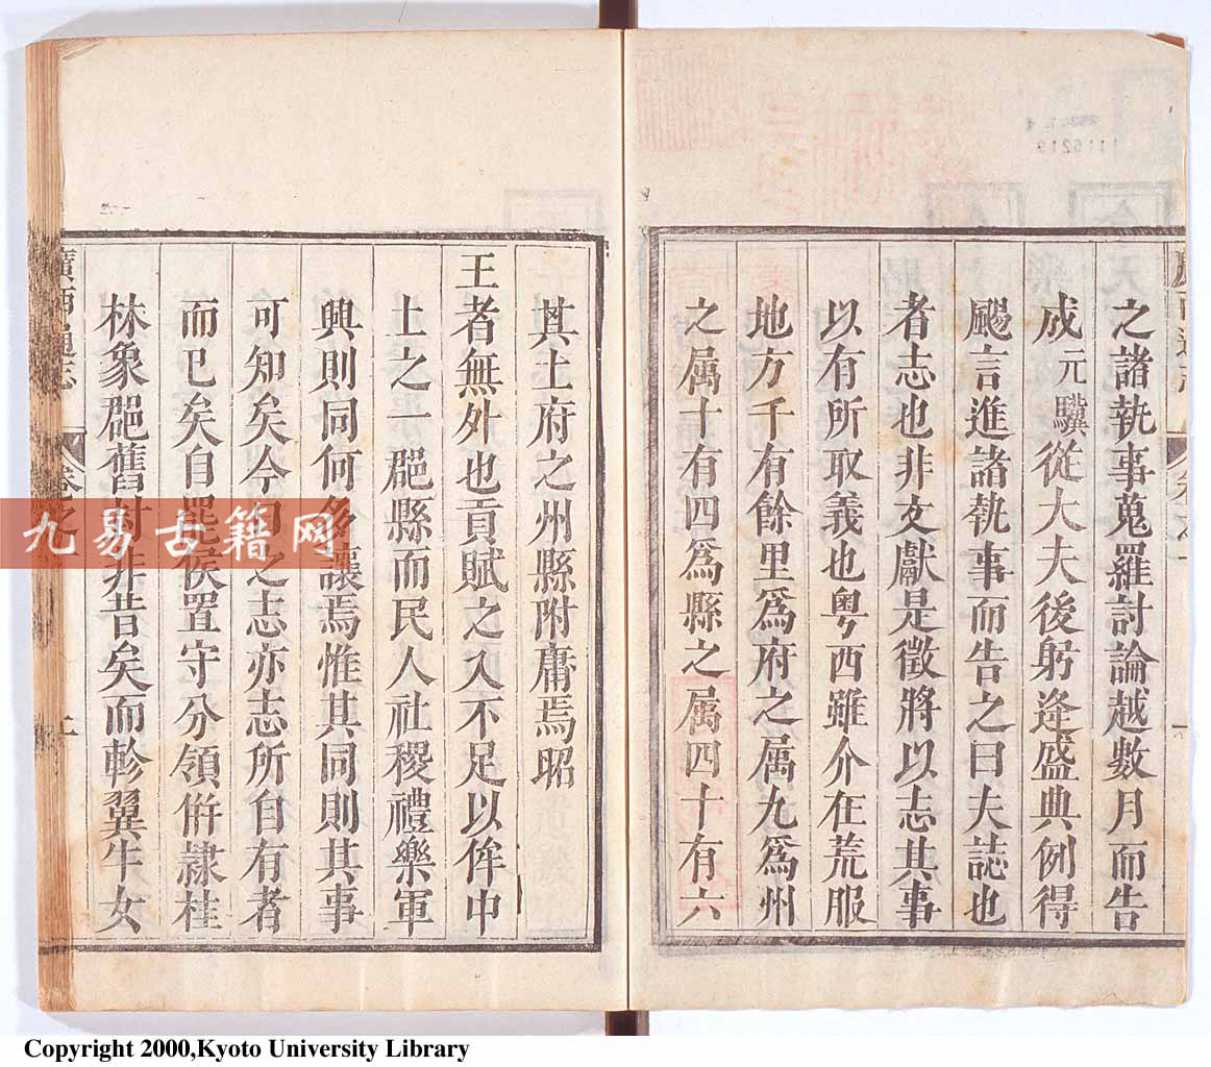 之諸執事蒐羅討論越數月而告
成元驥從大夫後躬逢盛典例得
颺言進諸執事而告之曰夫誌也
者志也非文獻是徵將以志其事
以有所取義也粤西雖介在荒服
地方千有餘里爲府之属九爲州
之属十有四爲縣之属四十有六
其土府之州縣附庸焉昭
王者無外也貢賦之入不足以侔中
土之一郡縣而民人社稷禮樂軍
興則同何多讓焉惟其同則其事
可知矣今日之志亦志所自有者
而已矣自罷侯置守分領倂隷桂
林象郡舊封非昔矣而軫翼牛女
廣西通志
卷之
九易古籍网
1116219
Copyright 2000,Kyoto University Library